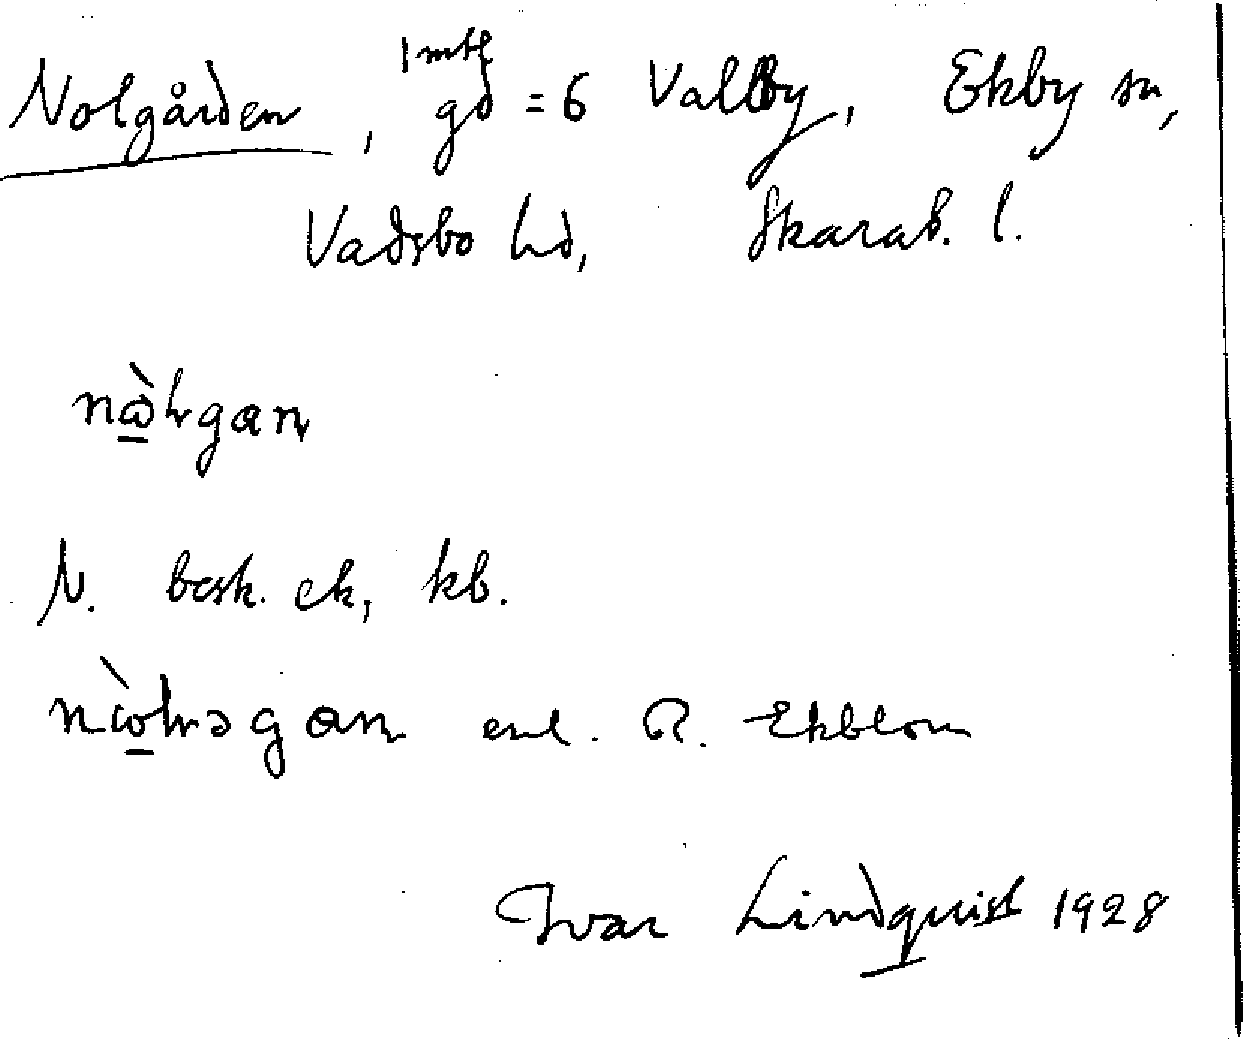 Nolgården, 1 mtl gd = 6 Vallby, Ekby sn,
Vadsbo hd, Skarab. l.
nɷ̀lgan
N. besk. ek, kb.
nɷ̀ləgan enl. R. Ekblom
Ivar Lindquist 1928